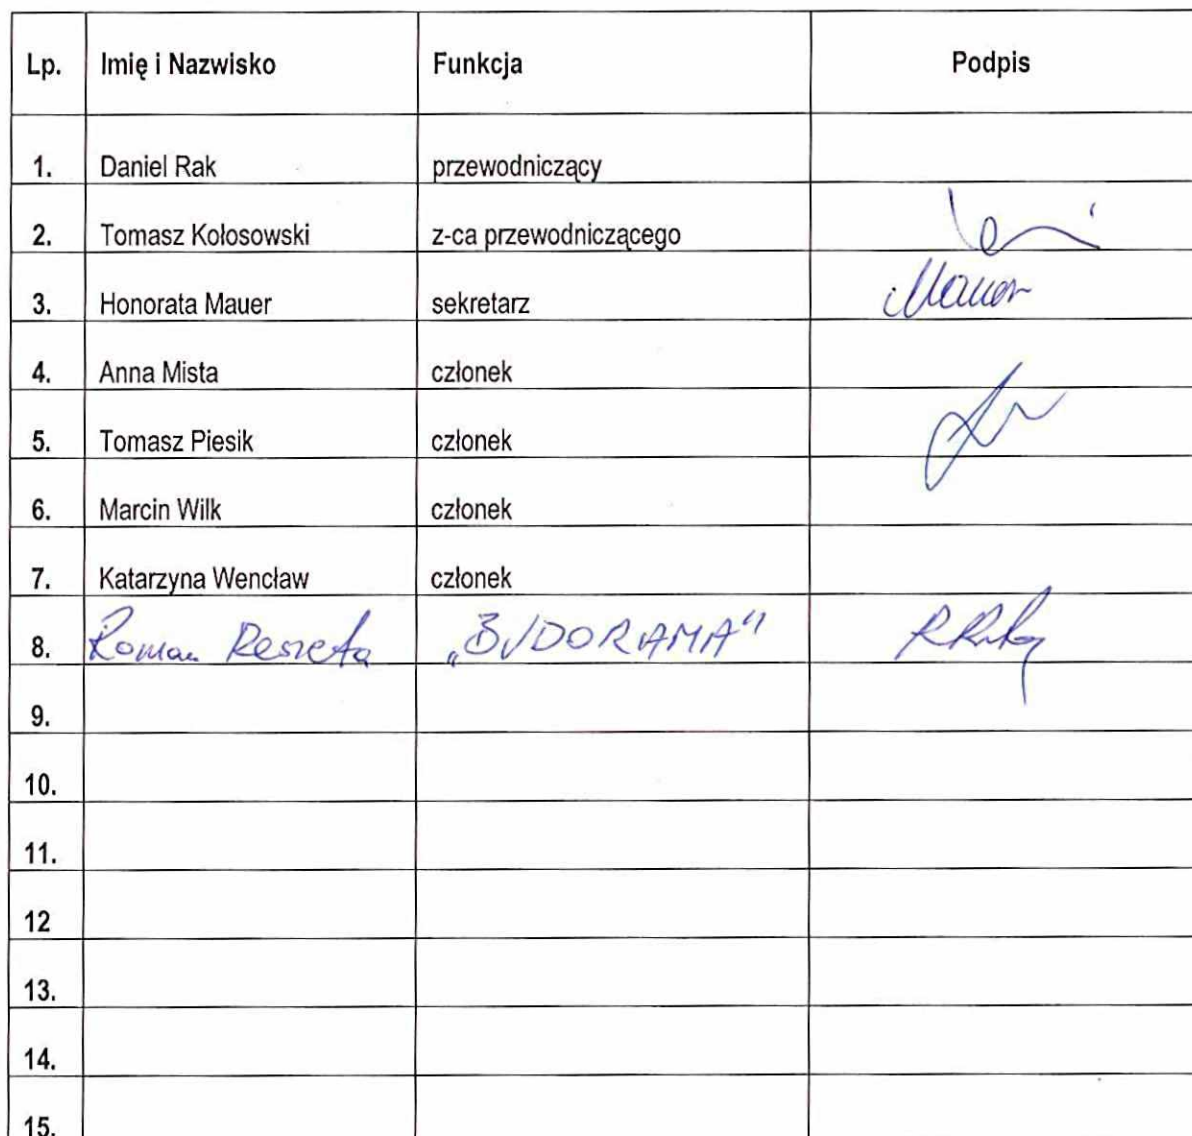 Lp. Imię i Nazwisko Funkcja Podpis
1. Daniel Rak przewodniczący
2. Tomasz Kołosowski z-ca przewodniczącego
3. Honorata Mauer sekretarz Mauer
4. Anna Mista członek
5. Tomasz Piesik członek
6. Marcin Wilk członek
7. Katarzyna Wencław członek
8. Roman Reszeta „BUDORAMA"
9.
10.
11.
12
13.
14.
15.